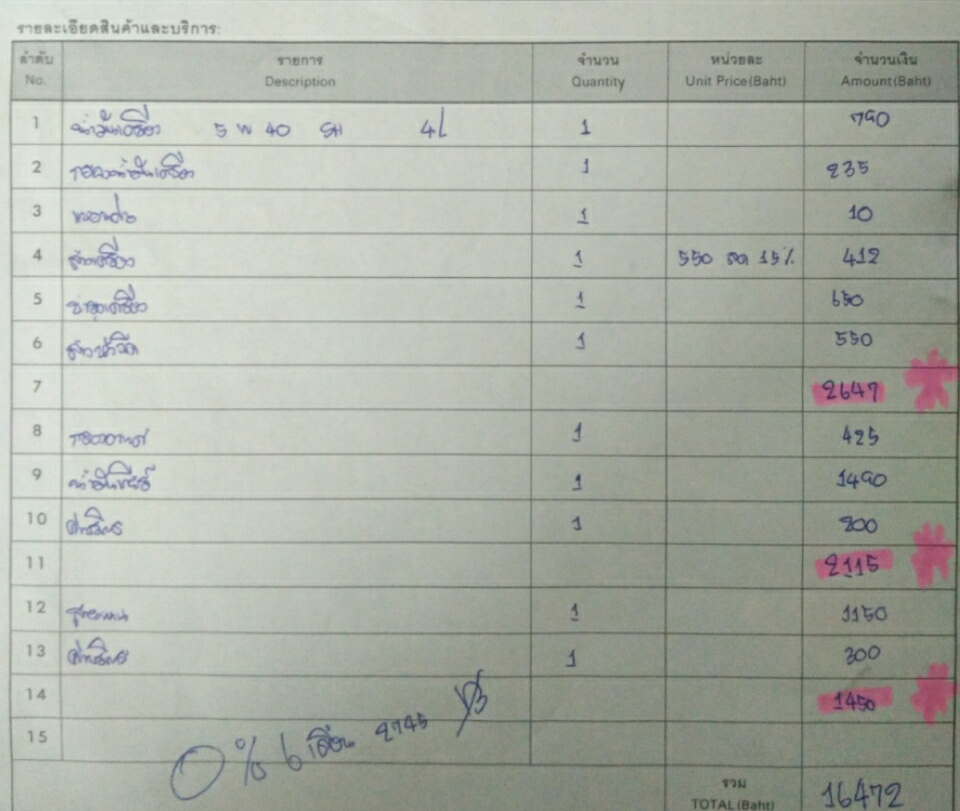 รายละเอียดสินค้าและบริการ:
ลำดับ รายการ จำนวน หน่วยละ จำนวนเงิน
No. Description Quantity Unit Price(Baht) Amount(Baht)
1 น้ำมันเครื่อง 5 W 40 4L 1 790
2 กรองน้ำมันเครื่อง 1 235
3 แหวน 1 10
4 ล้างเครื่อง 1 550 ลด 15% 412
5 เครื่อง 1 650
6 1 550
7 2647
8 กรองอากาศ 1 425
9 น้ำมันเกียร์ 1 1490
10 ค่าบริการ 1 200
11 2115
12 1 1150
13 ค่าบริการ 1 300
14 1450
15
0% 6 เดือน 2745
รวม
TOTAL(Baht) 16472